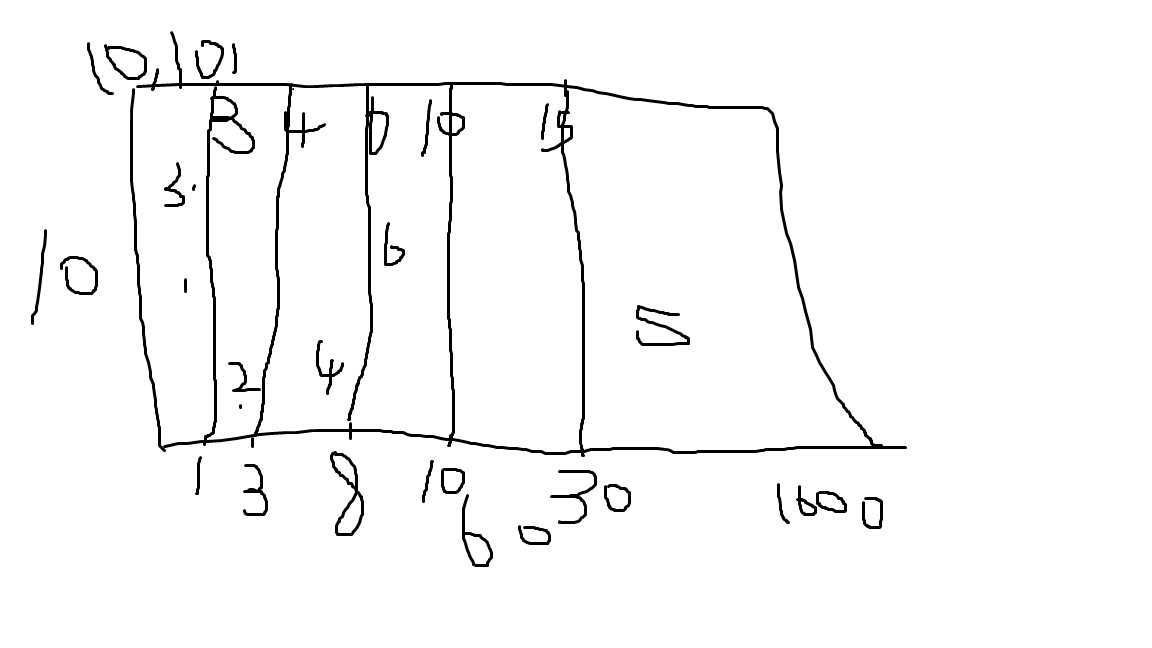 10,101
3 4 10 15
3.
6
10
1
5
2 4
1 3 8 10 30 1000
60